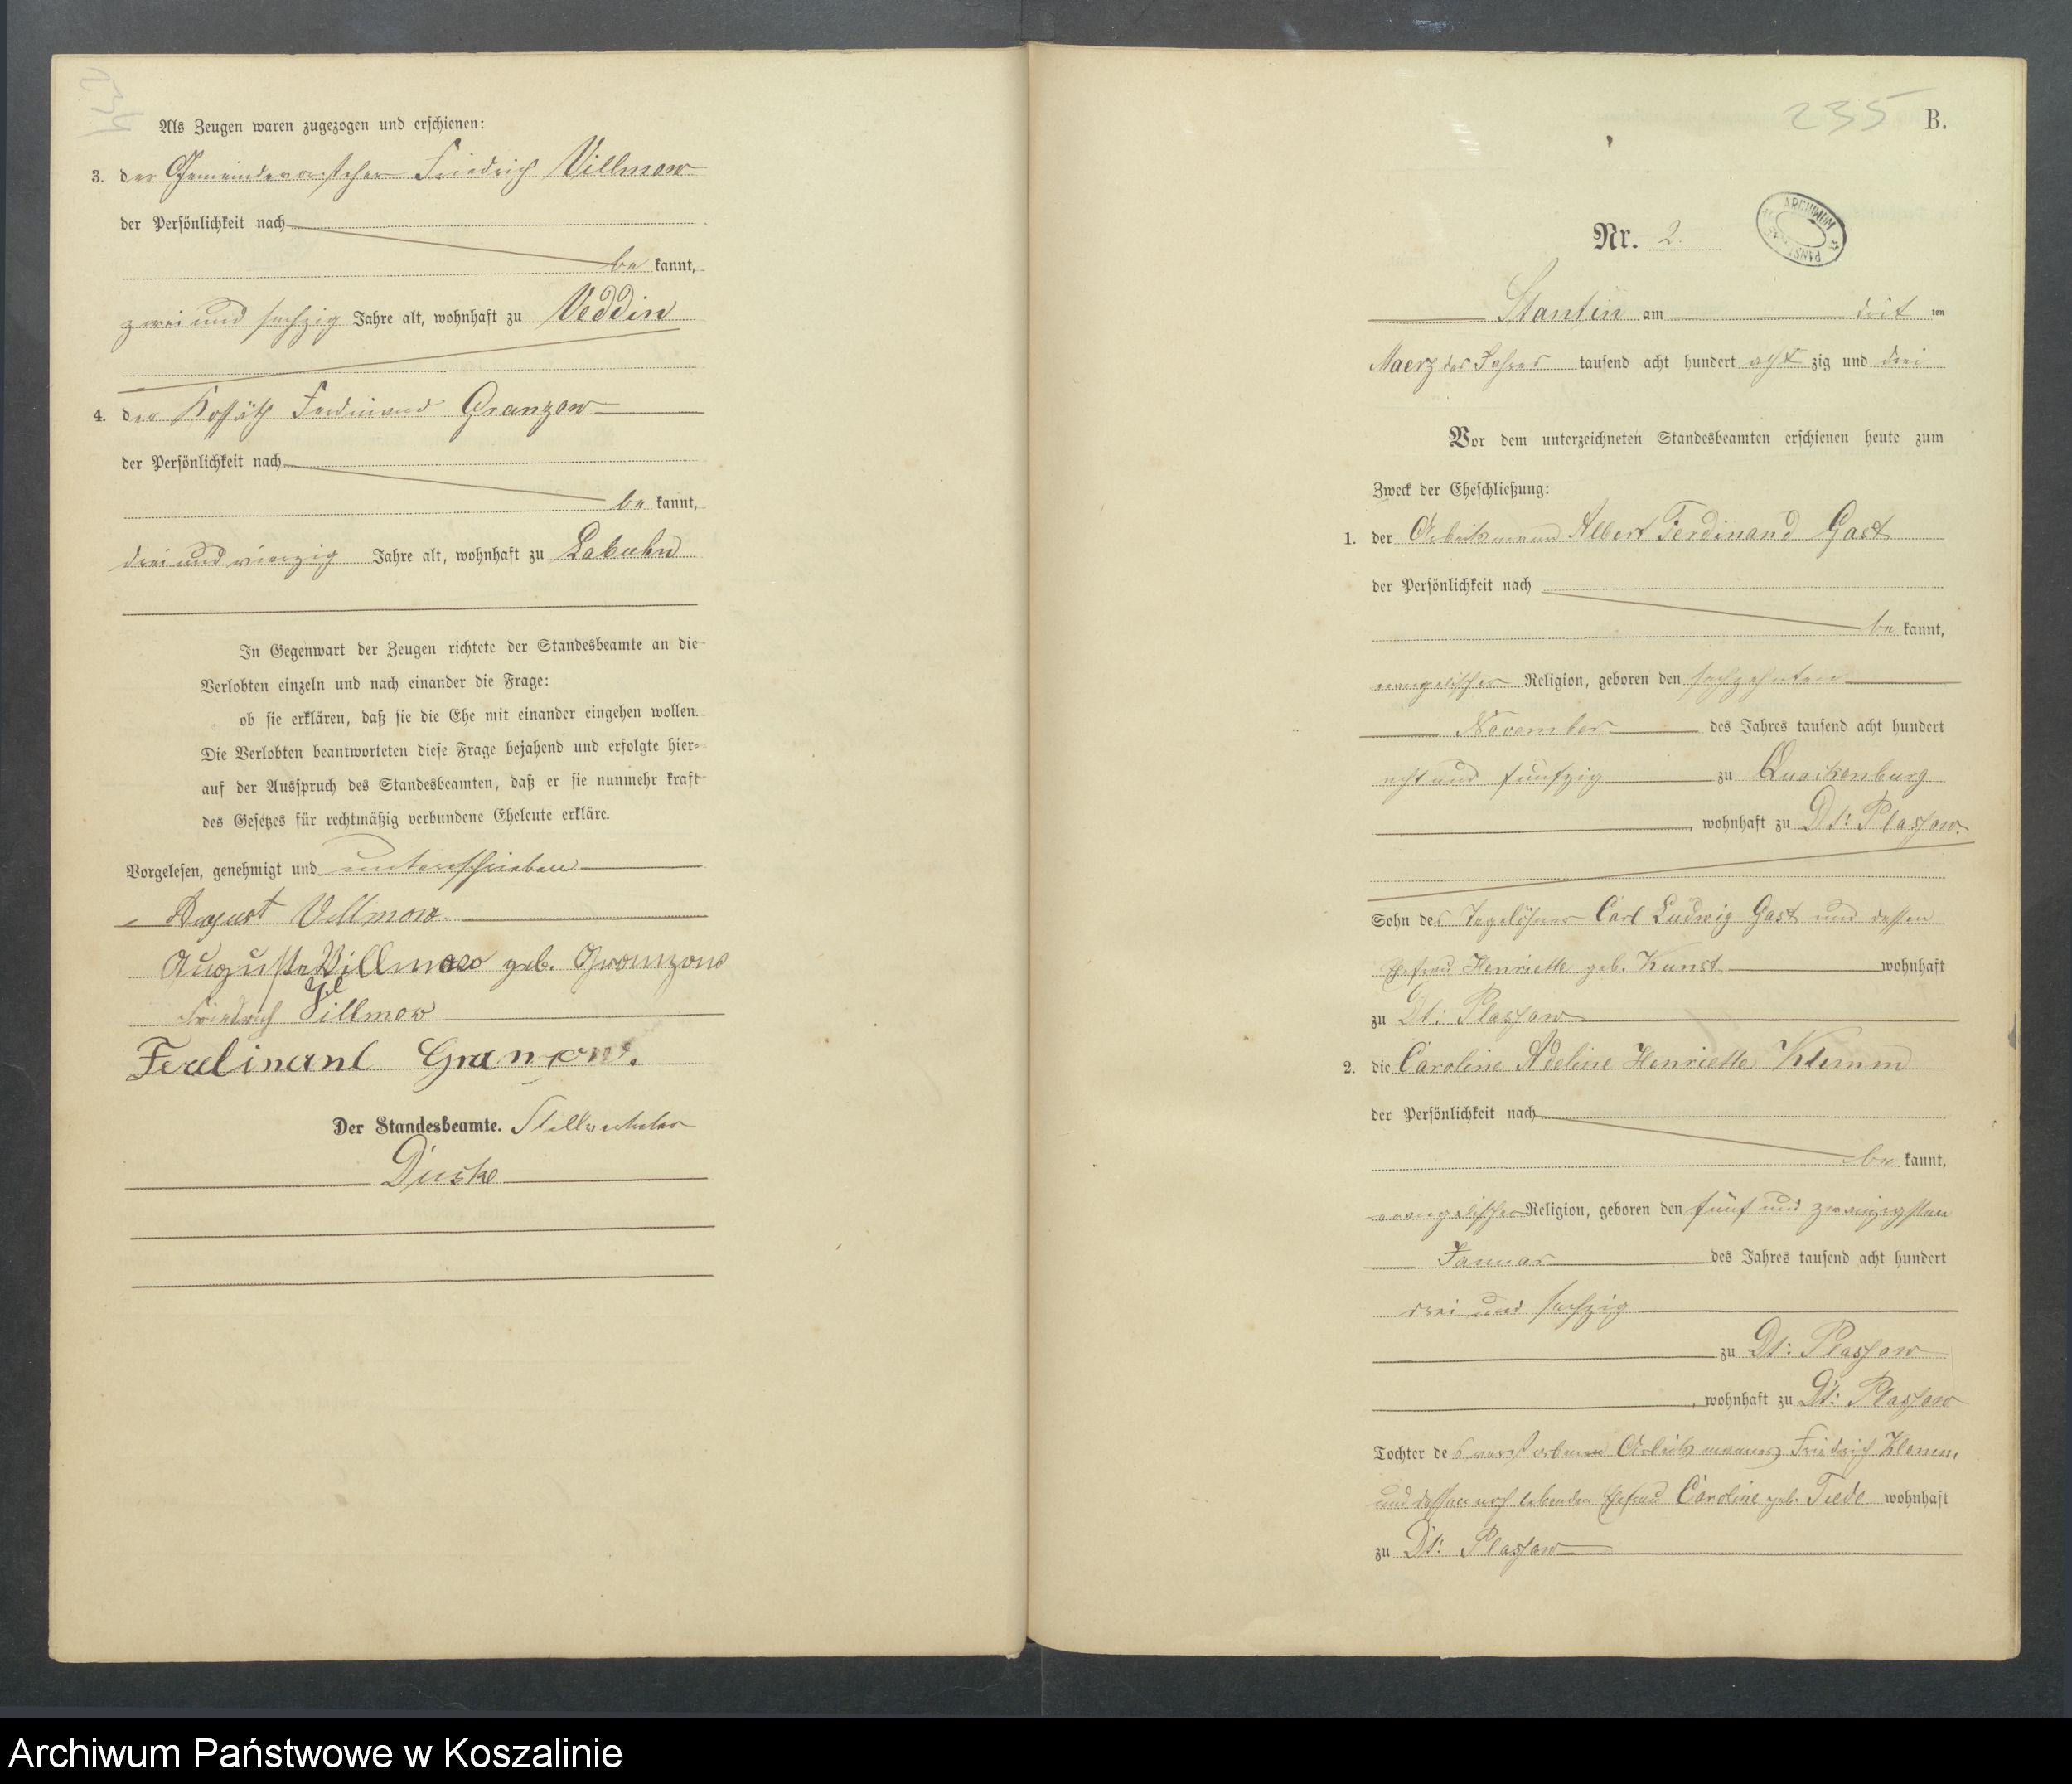 234
Als Zeugen waren zugezogen und erschienen:
3. der Gemeindevorsteher Friedrich Villmow
der Persönlichkeit nach
be kannt,
zwei und sechzig Jahre alt, wohnhaft zu Veddin
4. der Kossäth Ferdinand Granzow
der Persönlichkeit nach
be kannt,
drei und vierzig Jahre alt, wohnhaft zu Labuhn
In Gegenwart der Zeugen richtete der Standesbeamte an die
Verlobten einzeln und nach einander die Frage:
ob sie erklären, daß sie die Ehe mit einander eingehen wollen.
Die Verlobten beantworteten diese Frage bejahend und erfolgte hier-
auf der Ausspruch des Standesbeamten, daß er sie nunmehr kraft
des Gesetzes für rechtmäßig verbundene Eheleute erkläre.
Vorgelesen, genehmigt und unterschrieben
August Villmow
Auguste Villmow geb. Granzow
Friedrich Villmow
Ferdinand Granzow.
Der Standesbeamte. Stellvertreter
235 B.
Nr. 2.
ARCHIWUM
Stantin am drit ten
Maerz des Jahres tausend acht hundert acht zig und drei
Vor dem unterzeichneten Standesbeamten erschienen heute zum
Zweck der Eheschließung:
1. der Arbeitsmann Albert Ferdinand Gast
der Persönlichkeit nach
be kannt,
evangelischer Religion, geboren den sechzehnten
November des Jahres tausend acht hundert
acht und fünfzig zu Quackenburg
, wohnhaft zu Dt: Plassow.
Sohn des Tagelöhner Carl Ludwig Gast und dessen
Ehefrau Henriette geb. Kunst wohnhaft
zu Dt: Plassow
2. die Caroline Adeline Henriette Klemm
der Persönlichkeit nach
be kannt,
evangelischer Religion, geboren den fünf und zwanzigsten
Januar des Jahres tausend acht hundert
drei und sechzig
zu Dt: Plassow
, wohnhaft zu Dt: Plassow
Tochter des verstorbenen Arbeitsmannes Friedrich Klemm,
und dessen noch lebenden Ehefrau Caroline geb. Tiede wohnhaft
zu Dt: Plassow
Archiwum Państwowe w Koszalinie